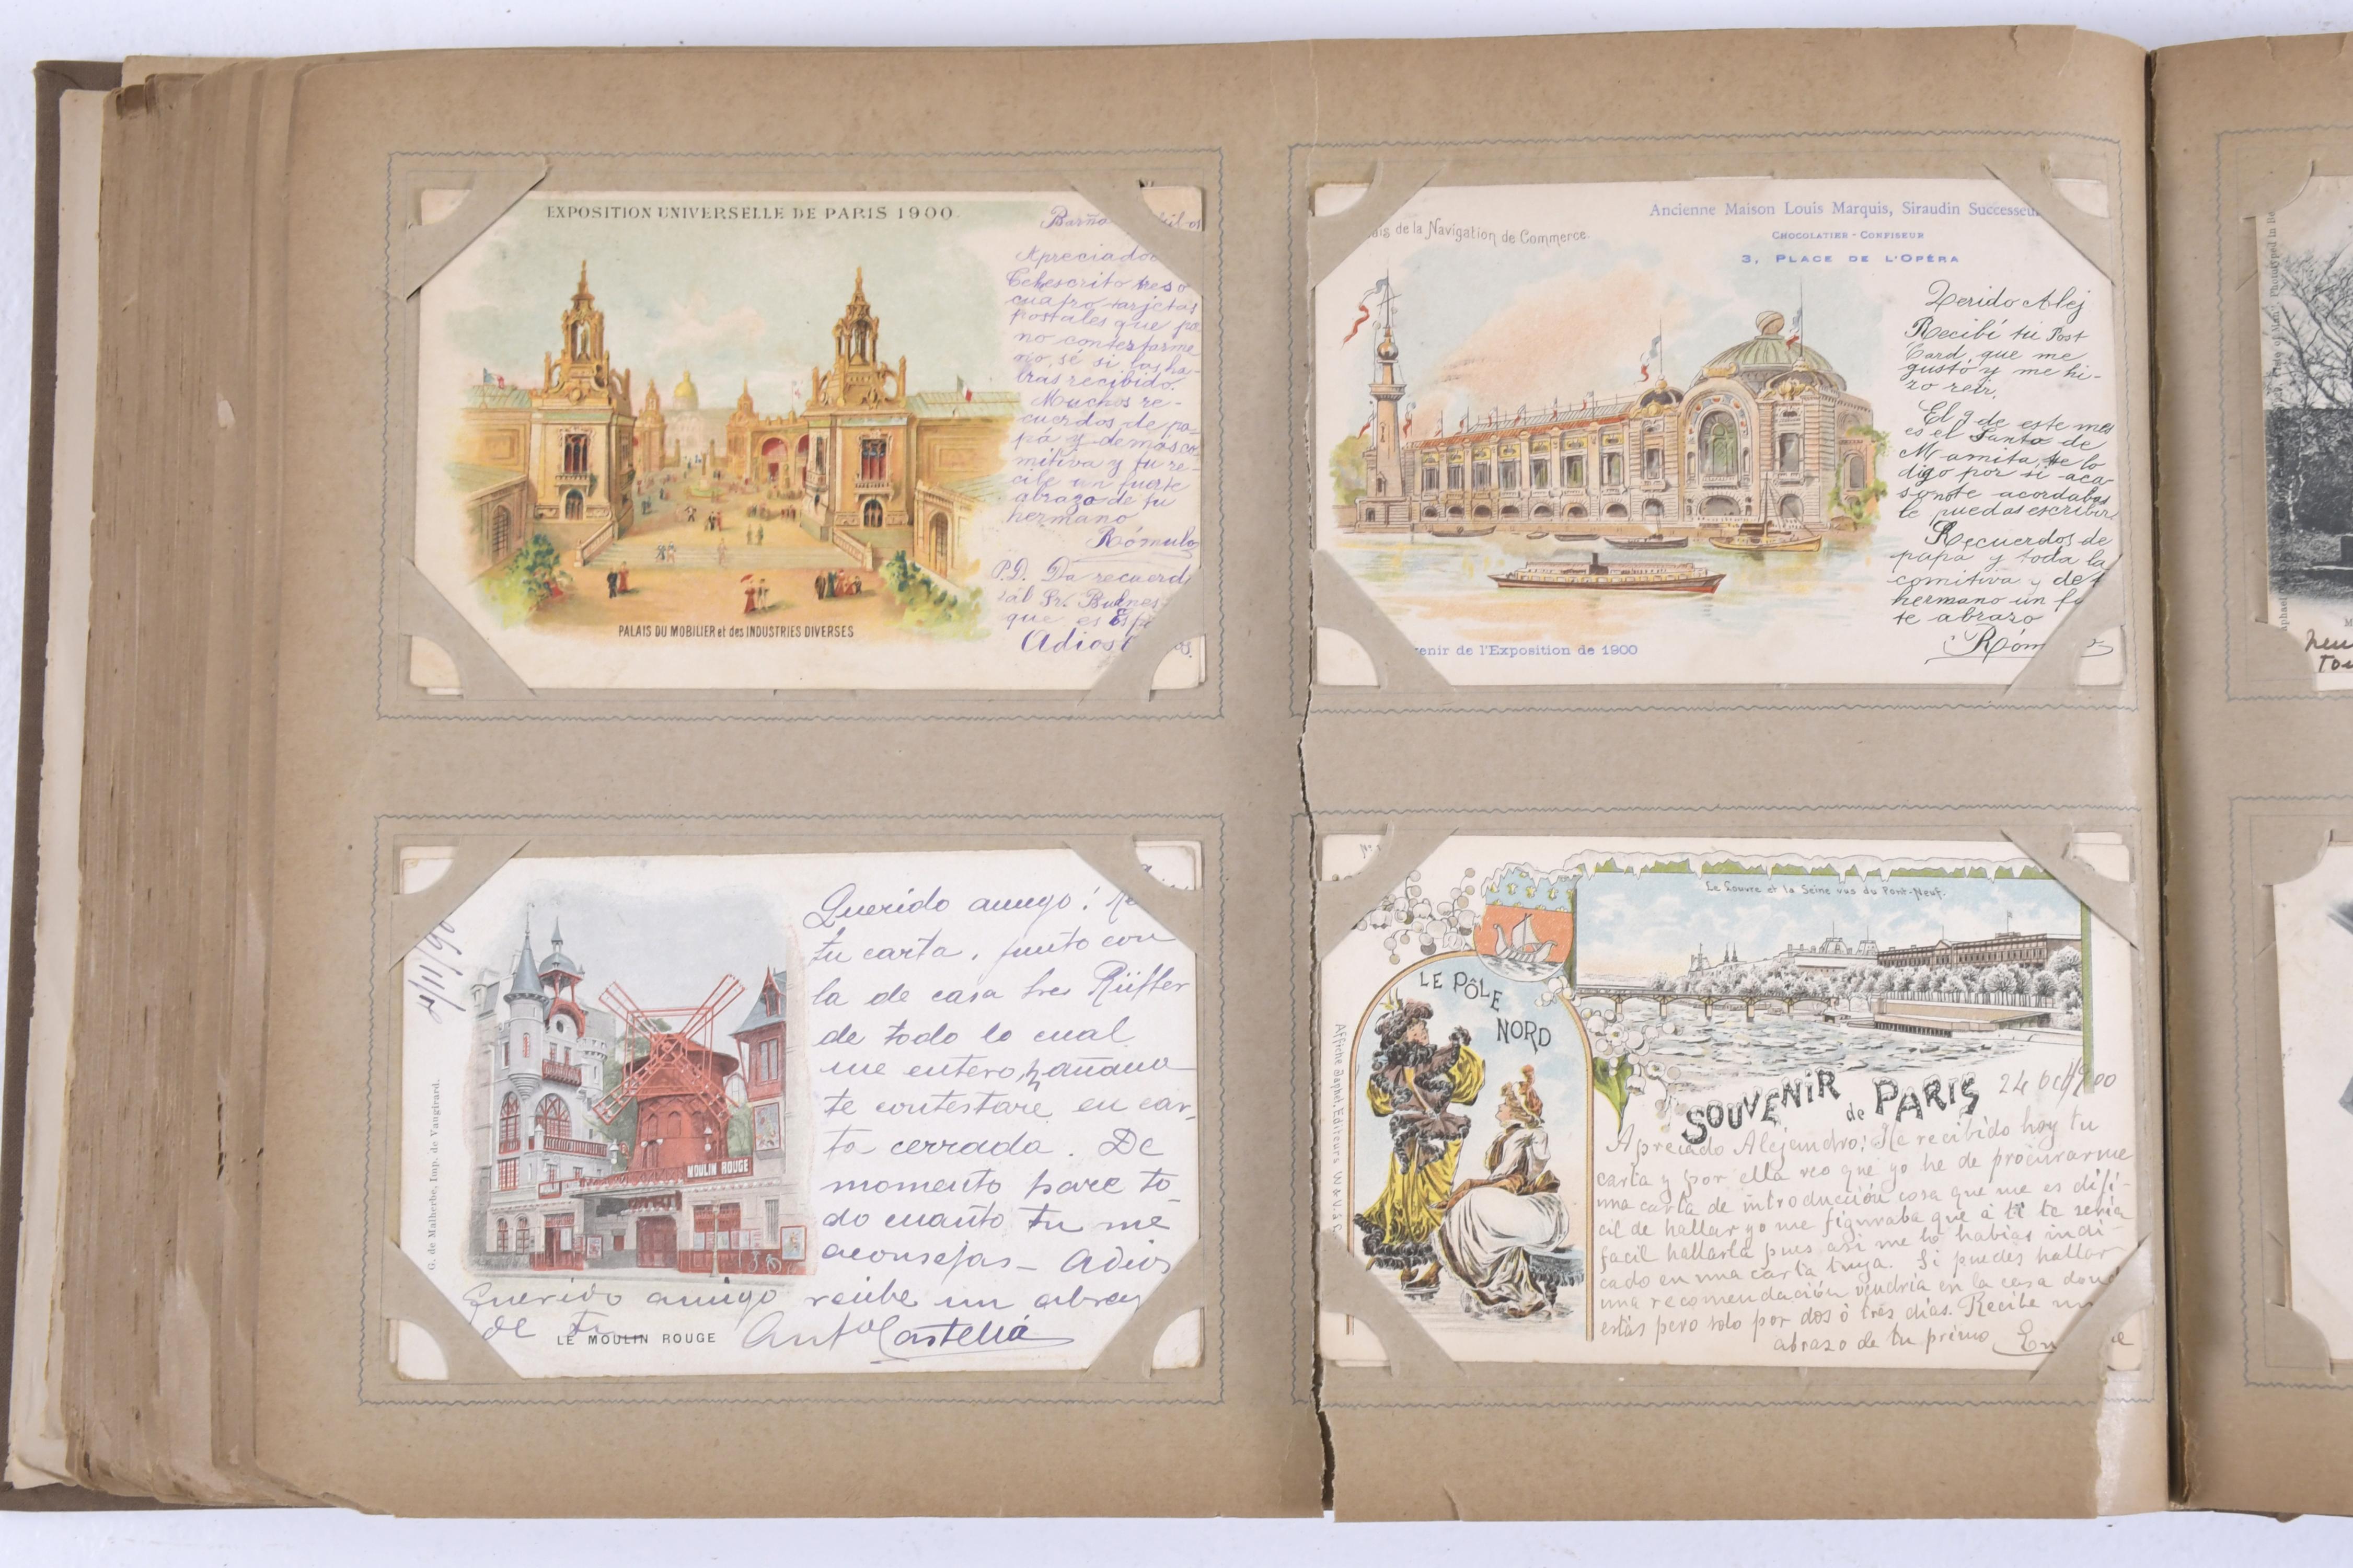 EXPOSITION UNIVERSELLE DE PARIS 1900.
Apreciado
Te he escrito tres o
cuatro tarjetas
postales que po
no contestarme
no, sé si las ha-
bras recibido.
Muchos re-
cuerdos de pa-
pá y demás co
mitiva y tu re-
cibe un fuerte
abrazo de tu
hermano
Rómulo
P.D. Da recuerd
al Sr.
que es
Adios
PALAIS DU MOBILIER et des INDUSTRIES DIVERSES
Ancienne Maison Louis Marquis, Siraudin Successeu
CHOCOLATIER - CONFISEUR
3, PLACE DE L'OPÉRA
ais de la Navigation de Commerce.
Qerido Alej
Recibí tu Post
Card, que me
gustó y me hi-
zo reir.
El 9 de este mes
es el Santo de
Mamita te lo
digo por si aca-
so no te acordabas
le puedas escribir
Recuerdos de
papa y toda la
comitiva y de t
hermano un fu
te abrazo
Róm
enir de l'Exposition de 1900
4/11/90
Querido amigo! Re
tu carta, junto con
la de casa Sres Rüffer
de todo lo cual
me entero, mañana
te contestare en car-
ta cerrada. De
momento hare to-
do cuanto tu me
aconsejas - Adios
recibe un abrazo
Querido amigo
de tu
Anto Castellá
MOULIN ROUGE
LE MOULIN ROUGE
G. de Malherbe, Imp. de Vaugirard.
Le Louvre et la Seine vus du Pont-Neuf.
LE PÔLE
NORD
SOUVENIR de PARIS
24 Oct/900
Apreciado Alejandro: He recibido hoy tu
carta y por ella veo que yo he de procurarme
una carta de introducción cosa que me es difi-
cil de hallar yo me figuraba que à ti te seria
facil hallarla pues asi me lo habias indi-
cado en una carta tuya. Si puedes hallar
una recomendación vendria en la casa dond
estás pero solo por dos ó tres días. Recibe un
abrazo de tu primo
Affiche Japhet, Editeurs W & V. & C.